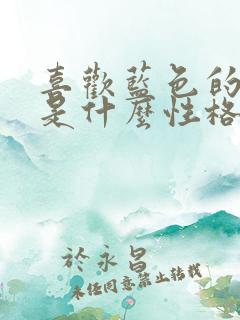 喜歡藍色的
是什麼性格
於永昌
未經同意禁止轉載